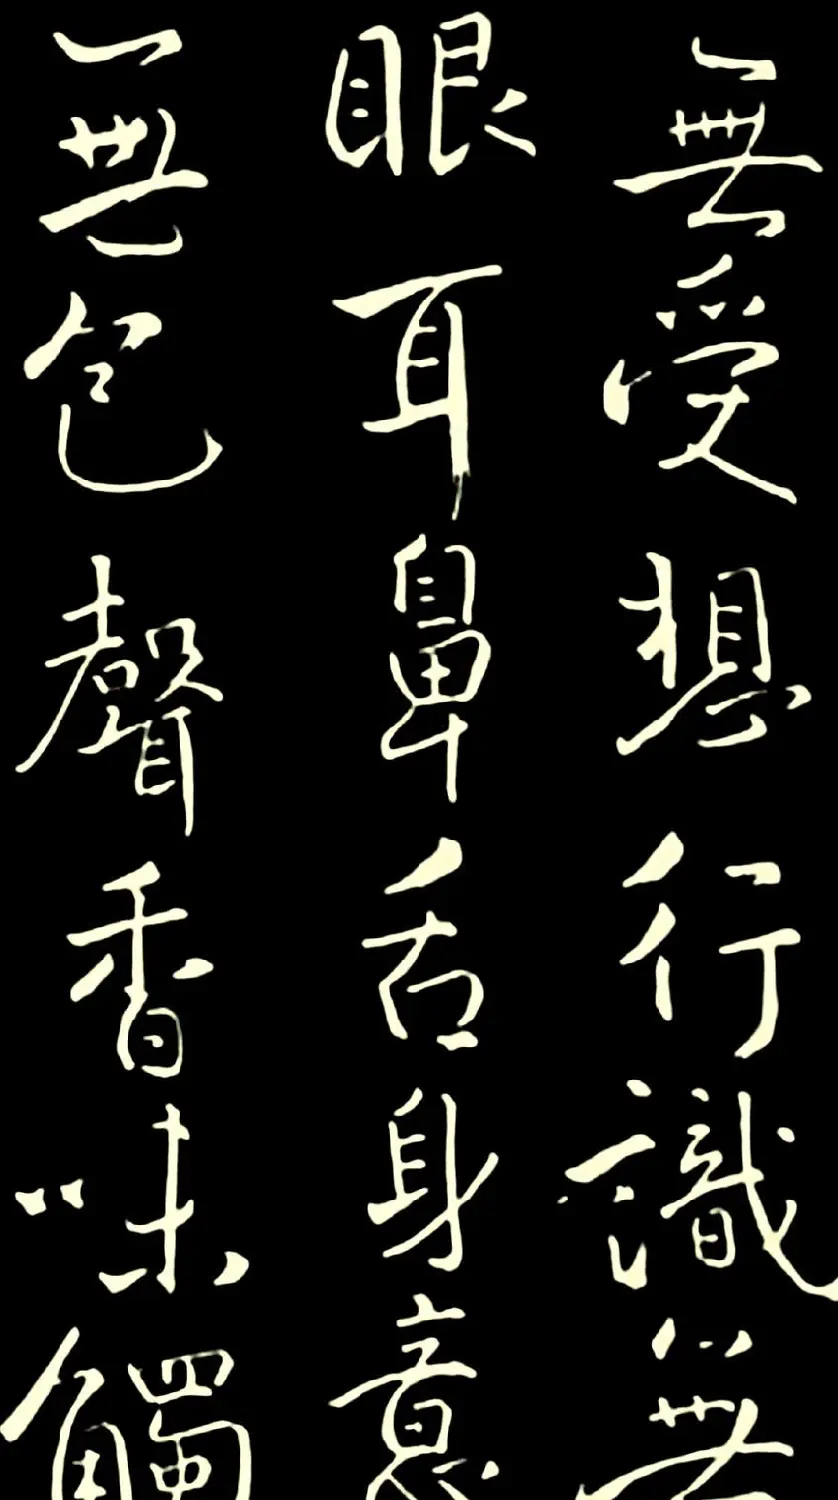 無受想行識無
眼耳鼻舌身意
無色聲香味觸